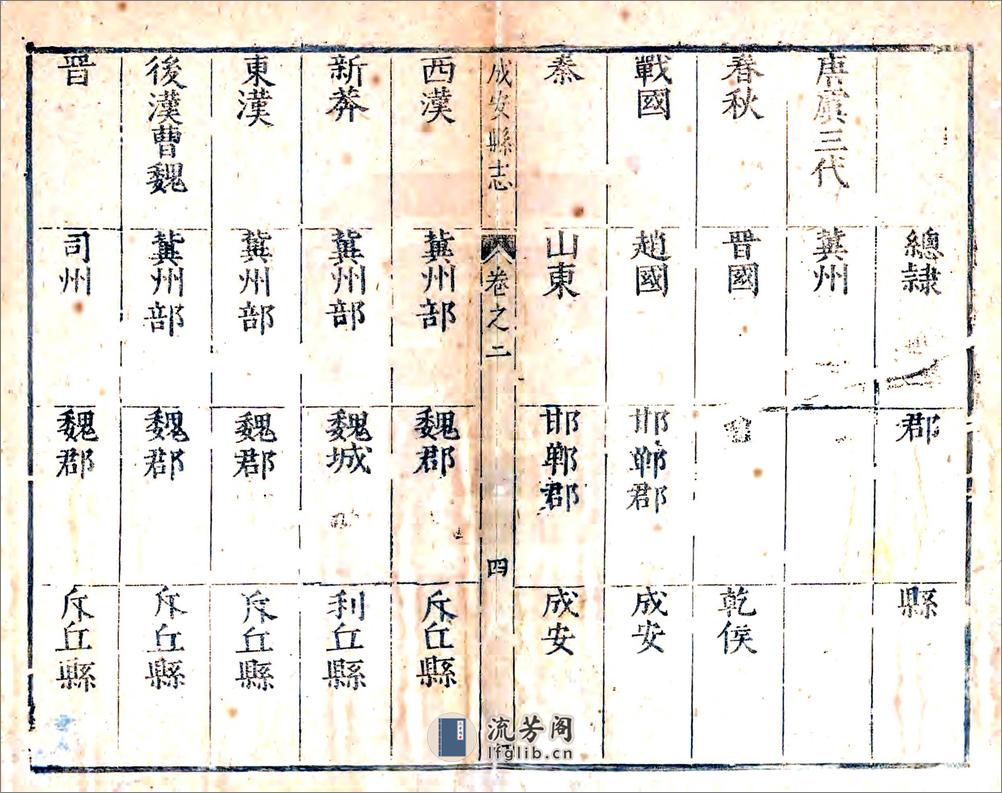 總隸 郡 縣
唐虞三代 冀州
春秋 晋國 乾侯
戰國 趙國 邯鄲郡 成安
秦 山東 邯鄲郡 成安
成安縣志 卷之二 四
西漢 冀州部 魏郡 斥丘縣
新莽 冀州部 魏城 利丘縣
東漢 冀州部 魏郡 斥丘縣
後漢曹魏 冀州部 魏郡 斥丘縣
晋 司州 魏郡 斥丘縣
流芳阁
lfglib.cn